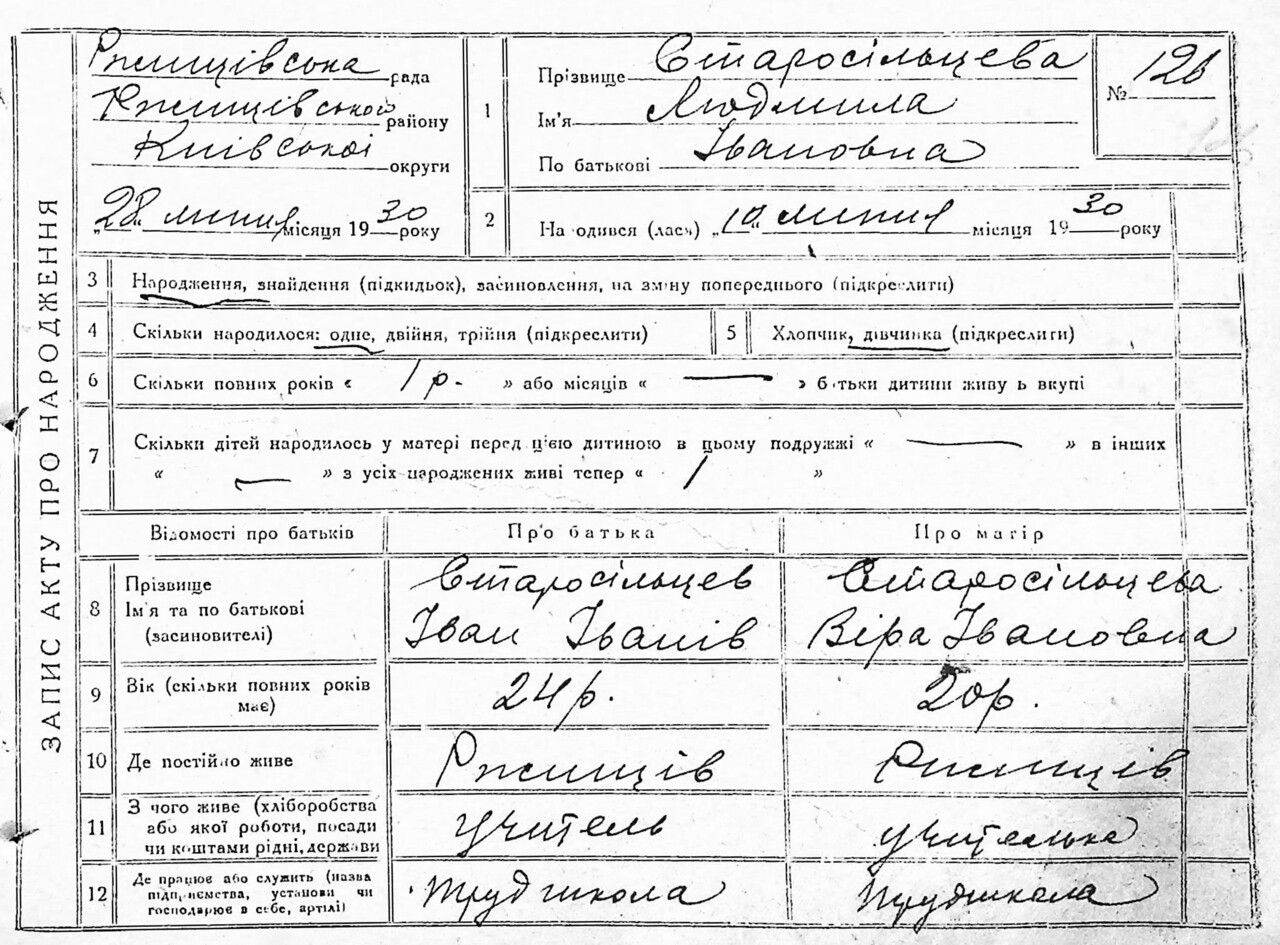 ЗАПИС АКТУ ПРО НАРОДЖЕННЯ
Ржищівська рада
Ржищівської району
Київської округи
„28“ липня місяця 1930 року
1
Прізвище Старосільцева
Ім'я Людмила
По батькові Івановна
№ 126
2
Народився (лася) „10“ липня місяця 1930 року
3 Народження, знайдення (підкидьок), засиновлення, на зміну попереднього (підкреслити)
4 Скільки народилося: одне, двійня, трійня (підкреслити)
5 Хлопчик, дівчинка (підкреслити)
6 Скільки повних років « 1 р. » або місяців « — » батьки дитини живуть вкупі
7 Скільки дітей народилось у матері перед цією дитиною в цьому подружжі « — » в інших
« — » з усіх народжених живі тепер « 1 »
Відомості про батьків Про батька Про матір
8
Прізвище Старосільцев Старосільцева
Ім'я та по батькові Іван Іванів Віра Івановна
(засиновителі)
9 Вік (скільки повних років 24 р. 20 р.
має)
10 Де постійно живе Ржищів Ржищів
11
З чого живе (хліборобства
або якої роботи, посади учитель учителька
чи коштами рідні, держави
12
Де працює або служить (назва
підприємства, установи чи трудшкола трудшкола
господарює в себе, артілі)